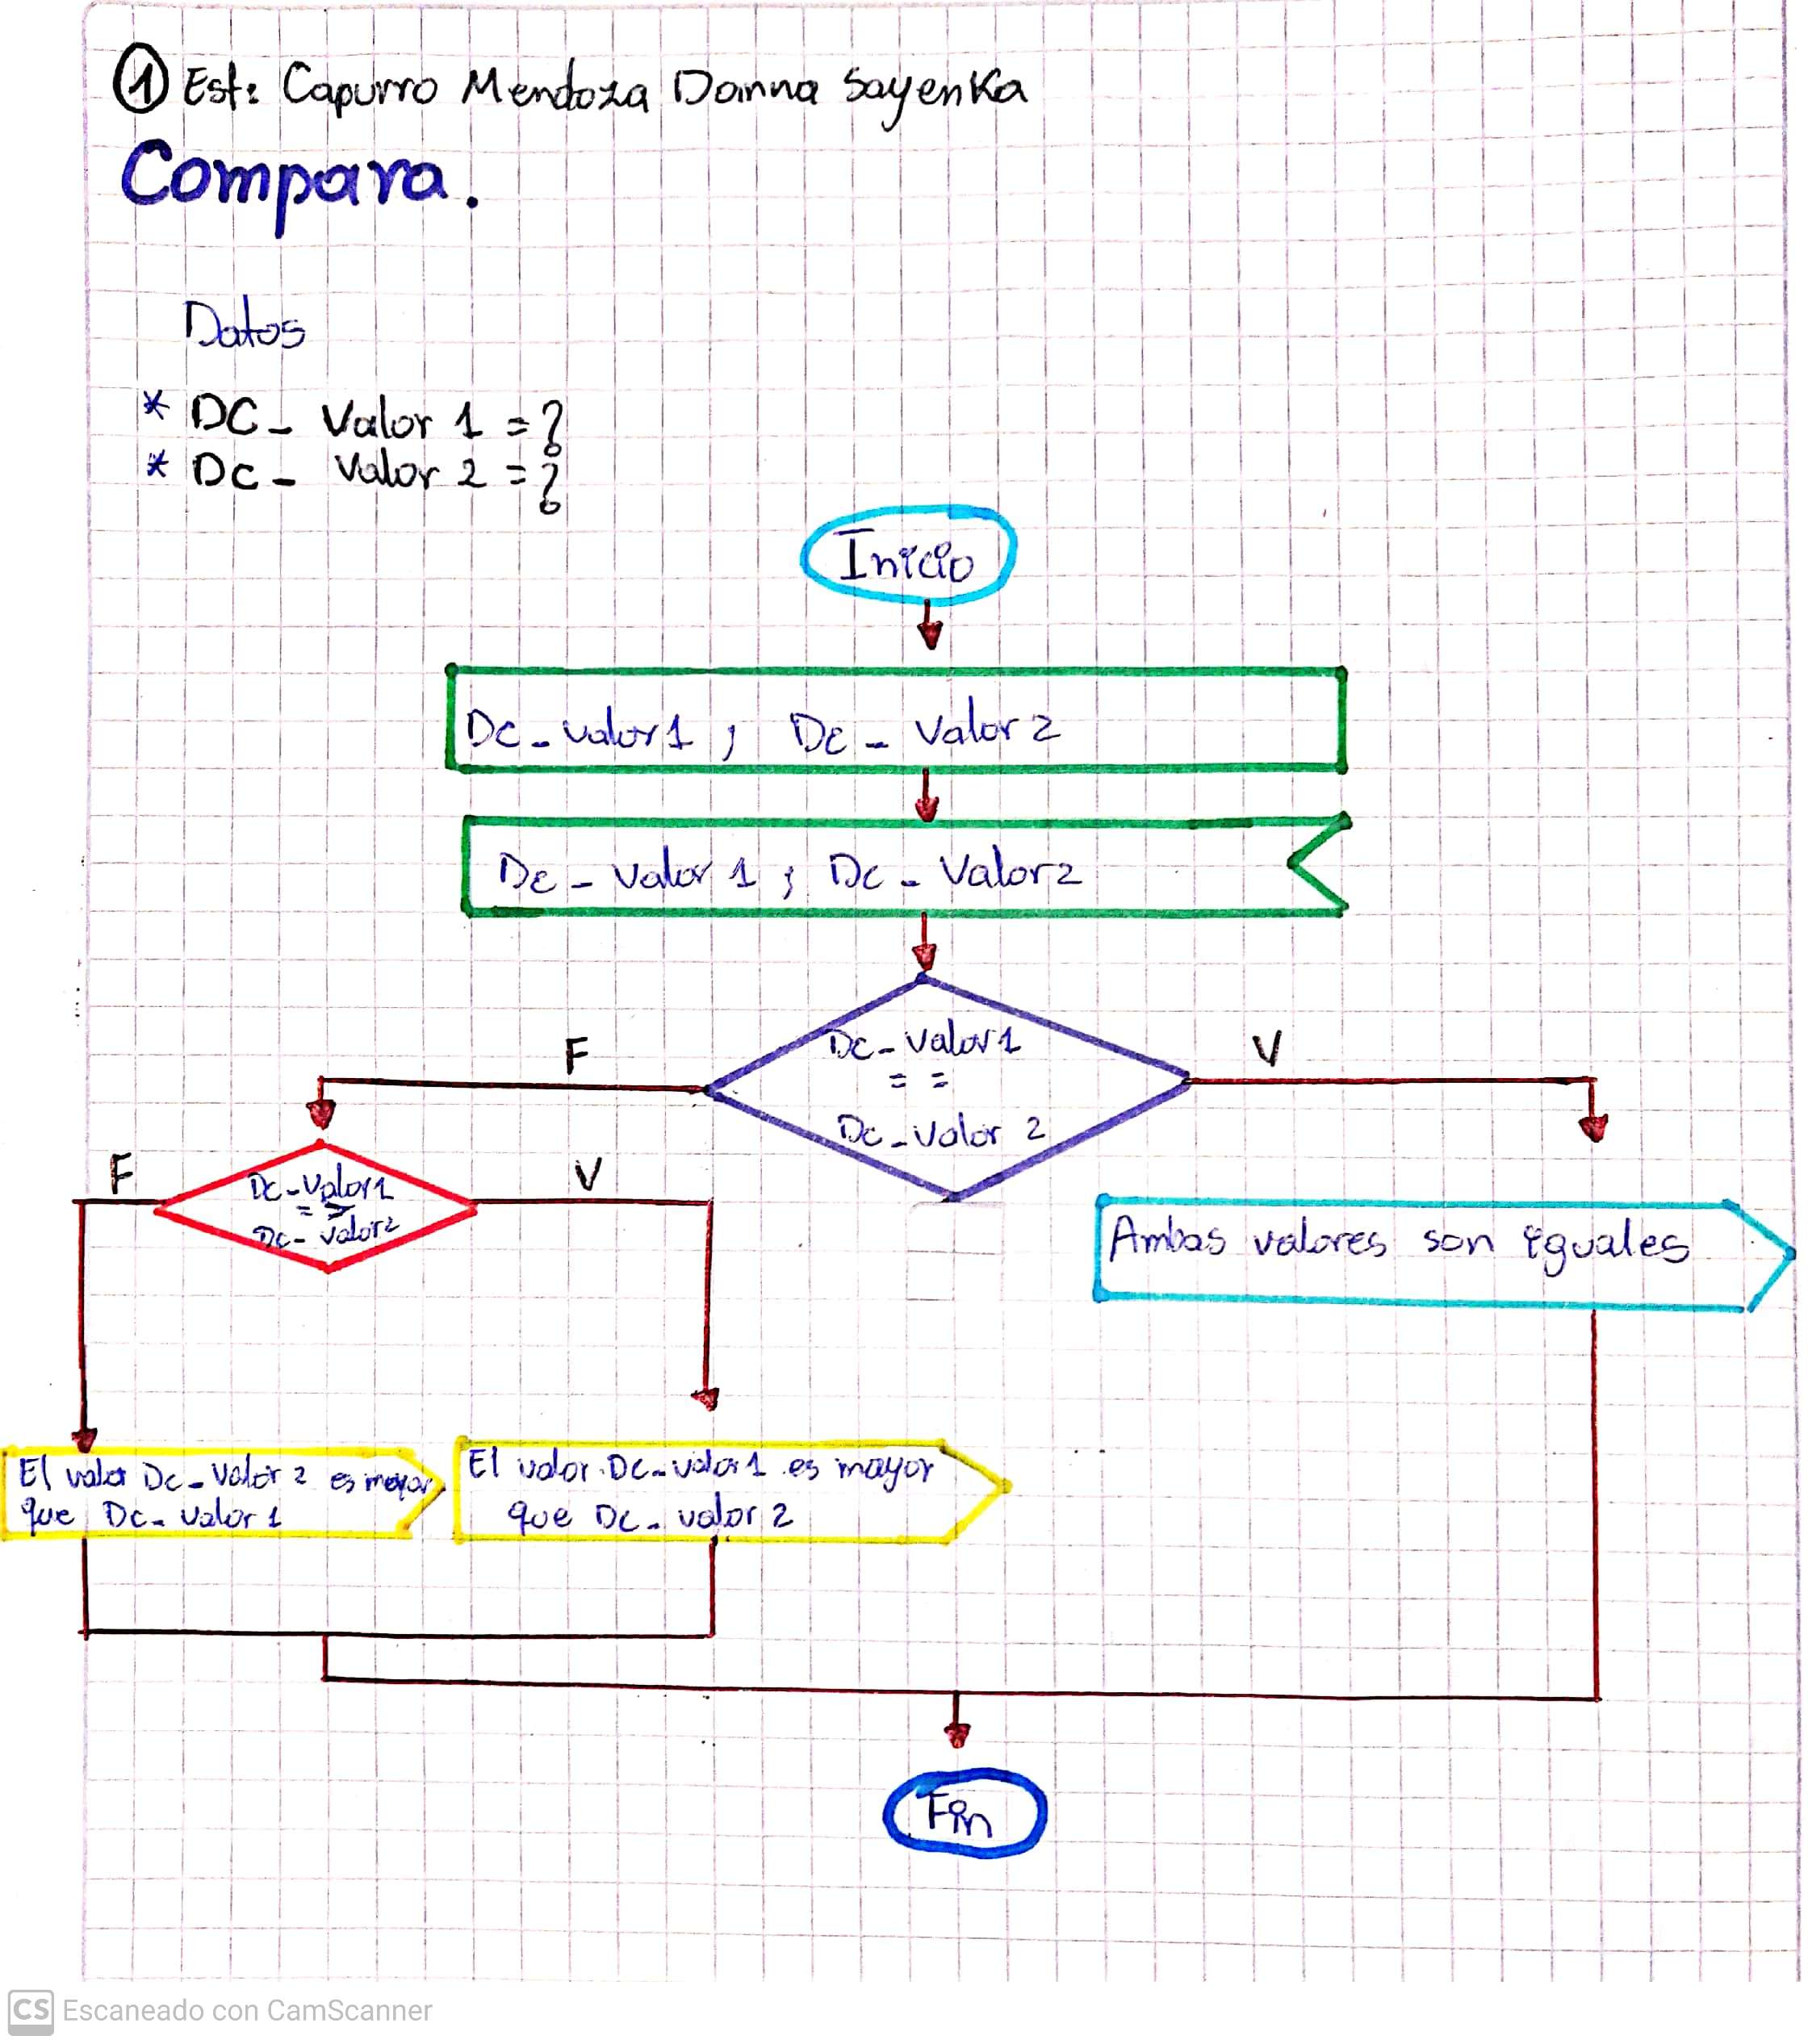 ① Est: Capurro Mendoza Danna Sayenka
Compara.
Datos
* DC_ Valor 1 = ?
* DC_ Valor 2 = ?
Inicio
Dc_valor1 ; Dc_ Valor 2
Dc_Valor 1 ; Dc_Valor2
Dc_Valor1
= =
Dc_Valor 2
F
V
F
V
Dc_Valor1
= >
Dc_ valor2
Ambas valores son iguales
El valor Dc_Valor 2 es mayor
que Dc_ valor 1
El valor Dc_valor1 es mayor
que Dc_ valor 2
Fin
CS Escaneado con CamScanner